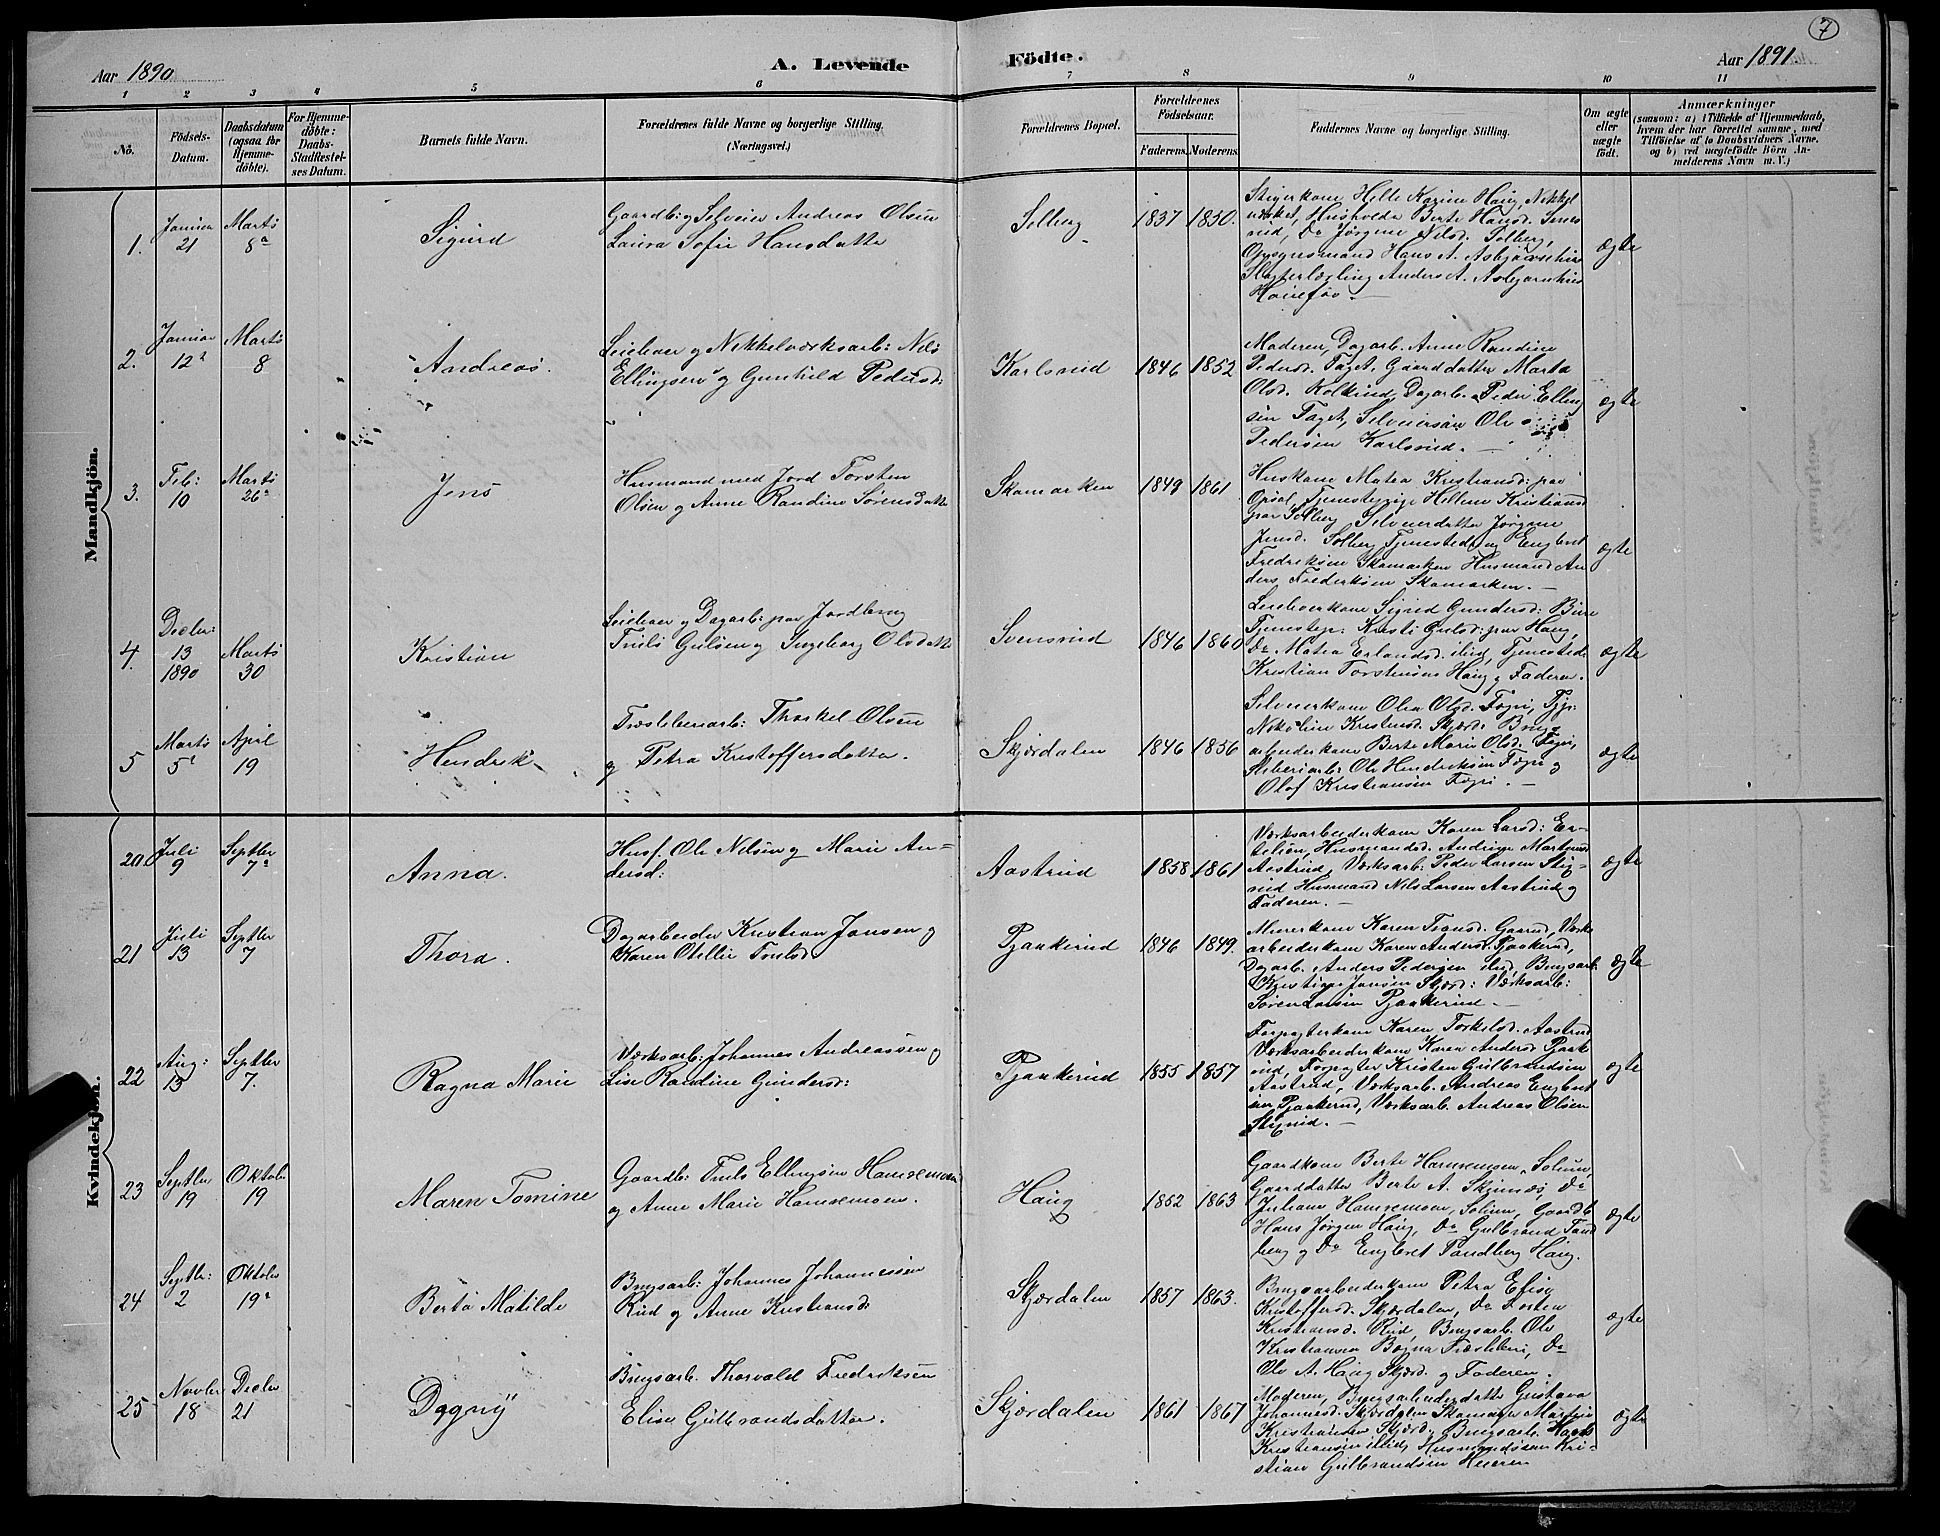 7
Aar 1890
A. Levende
Födte.
Aar 1891
1 2 3 4 5 6 7 8 9 10 11
No.
Födsels-
Datum.
Daabsdatum
(ogsaa for
Hjemme-
döbte).
For Hjemme-
döbte:
Daabs-
Stadfæstel-
ses Datum.
Barnets fulde Navn.
Forældrenes fulde Navne og borgerlige Stilling.
(Næringsvei.)
Forældrenes Bopæl.
Forældrenes
Födselsaar.
Faderens.
Moderens.
Faddernes Navne og borgerlige Stilling.
Om ægte
eller
uægte
født.
Anmærkninger
(saasom: a) i Tilfælde af Hjemmedaab,
hvem der har forrettet samme, med
Tilföielse af to Daabsvidners Navne.
og b) ved uægtefödte Börn An-
melderens Navn m. V.)
Mandkjön.
1.
Januar
21
Marts
8
Sigurd
Gaardb: og Selveier Andreas Olsen
Laura Sofie Hansdatter
Solberg
1837
1850.
Stigerkone Helle Karine Haug, Nikkel
værket, Husholdr. Berte Hansd.
rud, Do Jørgine Nilsd. Solberg,
Opsynsmand Hans A. Asbjørnsen
Slagterlærling Anders A.
Hønefos. —
ægte
2.
Januar
12
Marts
8
Andreas.
Leieboer og Nikkelværksarb: Nils
Ellingsen og Gunhild Pedersd:
Karlsrud
1846
1852
Moderen, Dagarb. Anne Randine
Pedersd. Faget, Gaarddatter Marta
Olsd. Kolkind, Dagarb. Peder Elling
sen Faget, Selveiersøn Ole
Pedersen Karlsrud. —
ægte
3.
Feb:
10
Marts
26
Jens
Husmand med Jord Torsten
Olsen og Anne Randine Sørensdatter
Skamarken
1849
1861
Huskone Matea Kristiansd: paa
Opsal, Tjenestepige Helline Kristiansd
paa Solberg, Selveierdatter Jørgine
Jensd. Solberg, Tjenestedreng Engbret
Fredriksen Skamarken Husmand An
ders Frederksen Skamarken. —
ægte
4.
Decbr:
13
1890
Marts
30
Kristian
Leieboer og Dagarb: paa Jordbrug
Truls Gulsen og Ingeborg Olsdatter
Svensrud
1846
1860
Leieboerkone Sigrid Gundersd: Bure
Tjenestep: Kristi Gulsd: paa Haug,
Do Matea Erlandsd. ibid, Tjenestedr
Kristian Torstensen Haug og Faderen.
ægte
5
Marts
5
April
19
Hendrik
Træsliberiarb: Thorkel Olsen
og Petra Kristoffersdatter.
Skjærdalen
1846
1856
Selveierkone Olea Olsd. Fægri, Tjp:
Nikoline Kristensd. Skjærd. Brugs
arbeiderkone Berte Marie Olsd. Fægri,
Sliberiarb. Ole Hendriksen Fægri og
Olaf Kristiansen Fægri. —
ægte
Kvindekjön.
20
Juli
9
Septbr
7
Anna.
Husf. Ole Nilsen og Marie An=
dersd:
Aastrud
1858
1861
Værksarbeiderkone Karen Larsd: Er-
telien, Husmandsd. Andrine Martinsd
Aastrud, Værksarb: Peder Larsen Stig=
rud Husmand Nils Larsen Aastrud og
Faderen. —
ægte
21
Juli
13
Septbr
7
Thora.
Dagarbeider Kristian Jonsen og
Karen Otillie Trulsd
Pjaakerud
1846
1849.
Murerkone Karen Gaarud, Værks
arbeiderkone Karen Andersd. Pjaakerud,
Dagarb. Anders Pedersen ibid, Brugsarb:
Kristian Jonsen Skjærd: Værksarb:
Søren Larsen Pjaakerud. —
ægte
22
Aug:
13
Septbr
7.
Ragna Marie
Værksarb: Johannes Andreassen og
Lise Randine Gundersd:
Pjaakerud
1855
1857
Forpagterkone Karen Torkelsd. Aastrud
Værksarbeiderkone Karen Andersd Pjaak
rud, Forpagter Kristen Gulbrandsen
Aastrud, Værksarb. Andreas Engbret
sen Pjaakerud, Værksarb. Andreas Olsen
Stigrud. —
ægte
23
Septbr
19
Oktober
19
Maren Tomine
Gaardb: Truls Ellingsen Hamremoen
og Anne Marie Hansemoen.
Haug
1852
1863
Gaardkone Berte Hamremoen, Solum
Gaarddatter Berte A. Skjørnæs, Do
Juliane Hamremoen, Solum, Gaardb.
Hans Jørgen Haug, Do Gulbrand Tand
berg og Do Engbret Tandberg Haug.
ægte
24
Septbr:
2
Oktober
19
Berta Matilde
Brugsarb: Johannes Johannessen
Rud og Anne Kristiansd:
Skjærdalen
1857
1863.
Brugsarbeiderkone Petra Elise
Kristoffersd. Skjærdalen, Do Dorten
Kristiansd. Rud, Brugsarb. Ole
Kristiansen Bægna Træsliberi, Do
Ole A. Haug Skjærd. og Faderen.
ægte
25
Novbr
18
Decbr
21
Dagny
Brugsarb. Thorvald Fredriksen
Elise Gulbrandsdatter.
Skjærdalen
1861
1867
Moderen, Brugsarbeiderdatter Gustava
Johannesd. Skjærdalen Skomager Martin
Kristiansen Skjærd., Brugsarb. Hans
Kristiansen ibid, Husmandssøn Kri-
stian Gulbrandsen Hueren
ægte